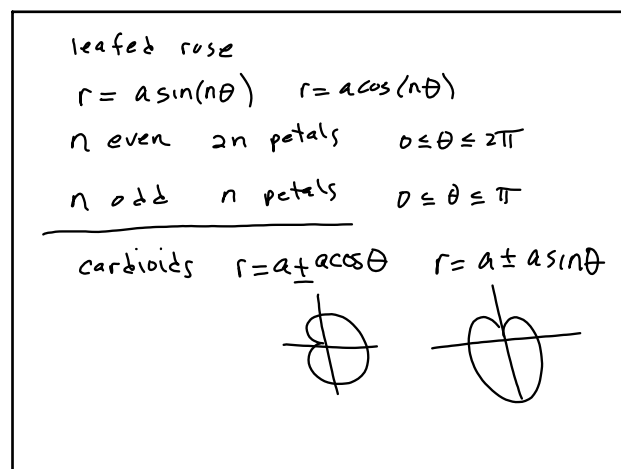 leafed rose
r = a sin(nθ) r = a cos(nθ)
n even 2n petals 0 ≤ θ ≤ 2π
n odd n petals 0 ≤ θ ≤ π
cardioids r = a ± a cosθ r = a ± a sinθ